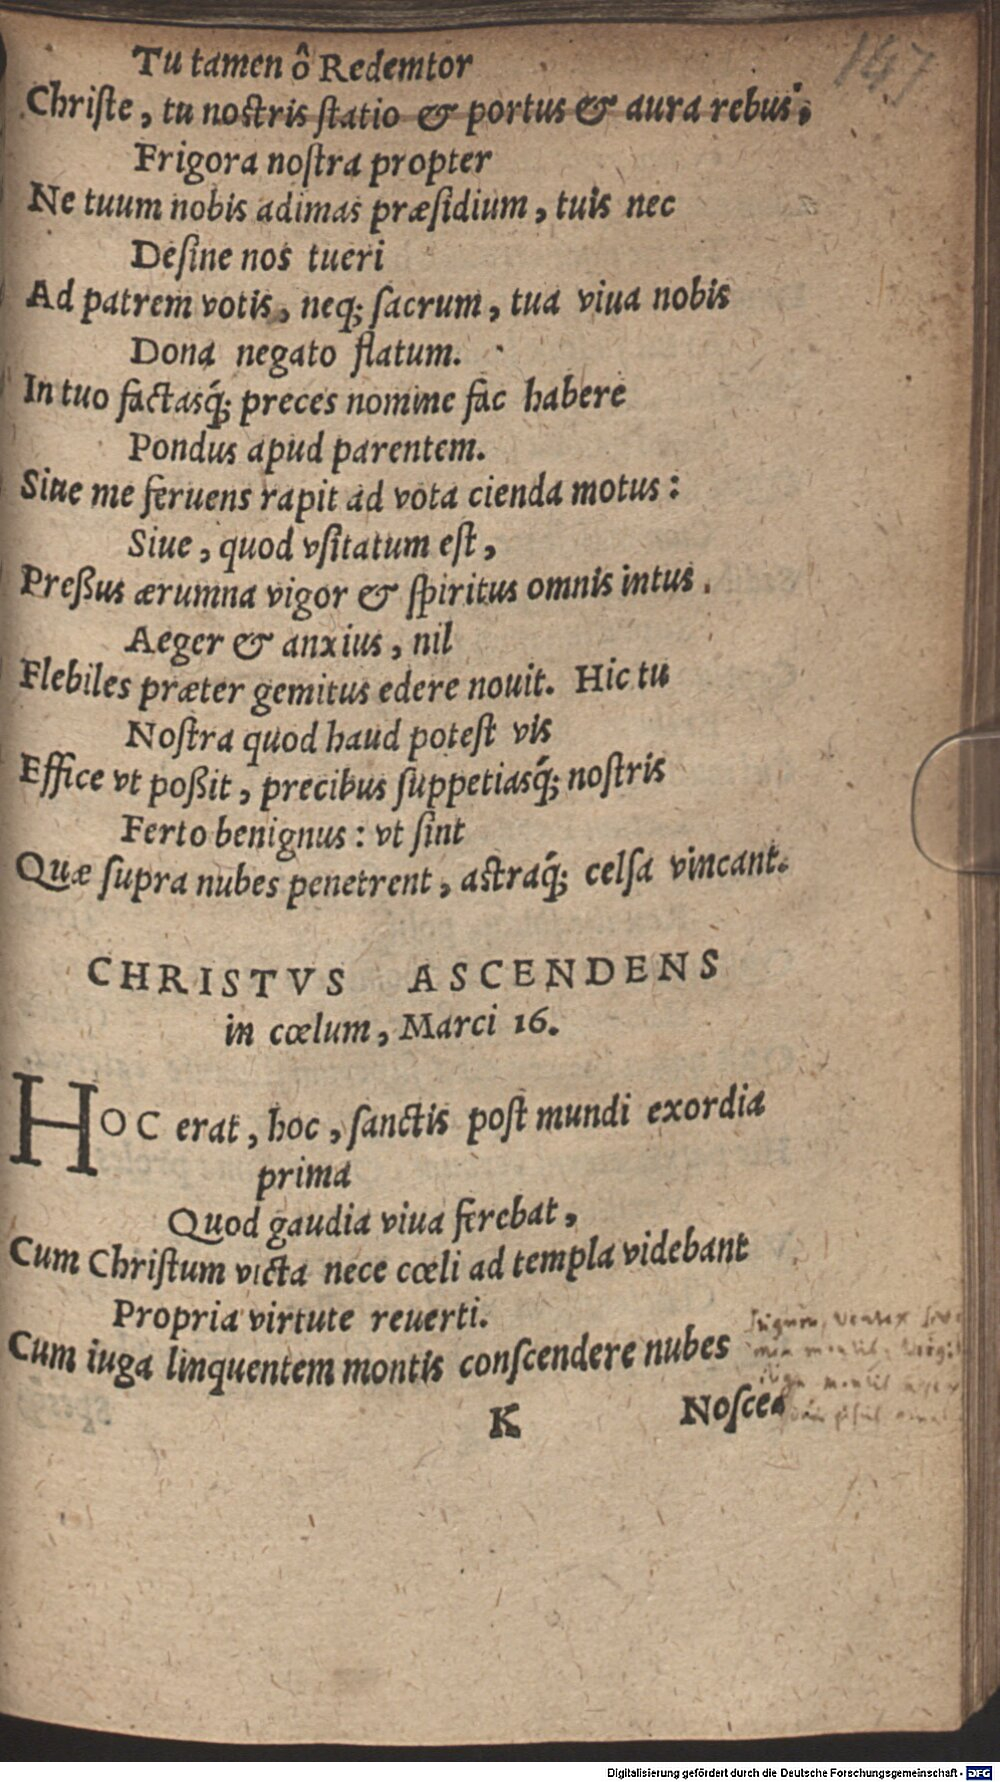 147
Tu tamen ô Redemtor
Chriſte, tu noſtris ſtatio & portus & aura rebus,
Frigora noſtra propter
Ne tuum nobis adimas præſidium, tuis nec
Deſine nos tueri
Ad patrem votis, neq; ſacrum, tua viua nobis
Dona negato flatum.
In tuo factasq́; preces nomine fac habere
Pondus apud parentem.
Siue me feruens rapit ad vota cienda motus:
Siue, quod vſitatum eſt,
Preßus ærumna vigor & ſpiritus omnis intus.
Aeger & anxius, nil
Flebiles præter gemitus edere nouit. Hic tu
Noſtra quod haud poteſt vis
Effice vt poßit, precibus ſuppetiasq́; noſtris
Ferto benignus: vt ſint
Quæ ſupra nubes penetrent, aſtraq́; celſa vincant.
CHRISTVS ASCENDENS
in cœlum, Marci 16.
HOC erat, hoc, ſanctis poſt mundi exordia
prima
Quod gaudia viua ferebat,
Cum Chriſtum victa nece cœli ad templa videbant
Propria virtute reuerti.
Cum iuga linquentem montis conſcendere nubes
K Noſcea
Digitalisierung gefördert durch die Deutsche Forschungsgemeinschaft - DFG